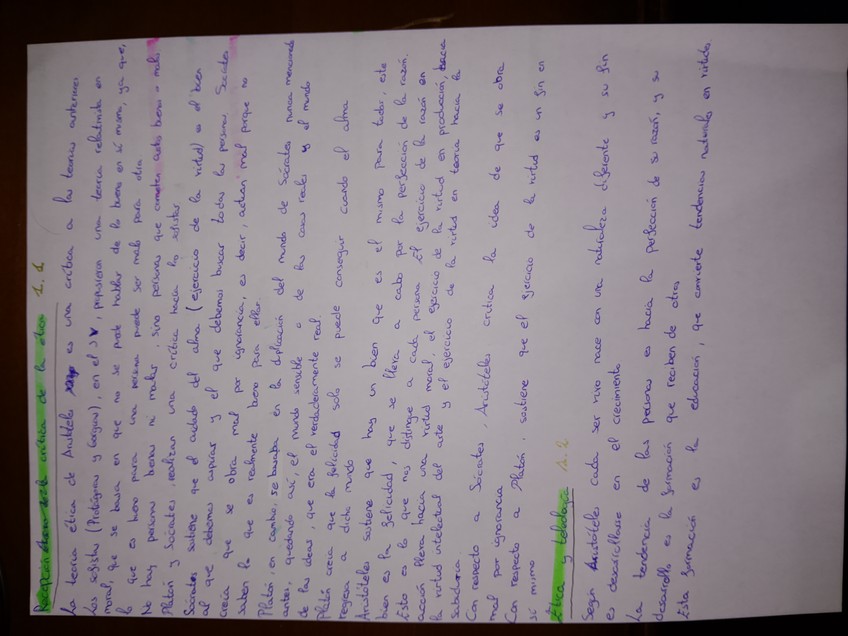 Recepción crítica de la ética 1.1
La teoría ética de Aristóteles es una crítica a las teorías anteriores
Los sofistas (Protágoras y Gorgias), en el S V, propusieron una teoría relativista en
moral, que se basa en que no se puede hablar de lo bueno en sí mismo, ya que,
lo que es bueno para una persona puede ser malo para otra
No hay personas buenas ni malas, sino personas que cometen actos buenos o malos
Platón y Sócrates realizan una crítica hacia los sofistas
Sócrates sostiene que el cuidado del alma (ejercicio de la virtud) es el bien
al que debemos aspirar y el que debemos buscar todas las personas Sócrates
creía que se obra mal por ignorancia, es decir, actúan mal porque no
saben lo que es realmente bueno para ellas.
Platón, en cambio, se basaba en la duplicación del mundo de Sócrates nunca mencionada
antes, quedando así, el mundo sensible o de las cosas reales y el mundo
de las ideas, que era el verdaderamente real.
Platón creía que la felicidad solo se puede conseguir cuando el alma
regresa a dicho mundo
Aristóteles sostiene que hay un bien que es el mismo para todos, este
bien es la felicidad, que se lleva a cabo por la perfección de la razón.
Esto es lo que nos distingue a cada persona El ejercicio de la razón en
acción lleva hacia una virtud moral, el ejercicio de la virtud en producción, hacia
la virtud intelectual del arte y el ejercicio de la virtud en teoría hacia la
sabiduría
Con respecto a Sócrates, Aristóteles critica la idea de que se obra
mal por ignorancia
Con respecto a Platón, sostiene que el ejercicio de la virtud es un fin en
sí mismo
Ética y teleología 1.2
Según Aristóteles cada ser vivo nace con una naturaleza diferente y su fin
es desarrollarse en el crecimiento
La tendencia de las personas es hacia la perfección de su razón, y su
desarrollo es la formación que reciben de otros
Esta formación es la educación, que convierte tendencias naturales en virtudes.